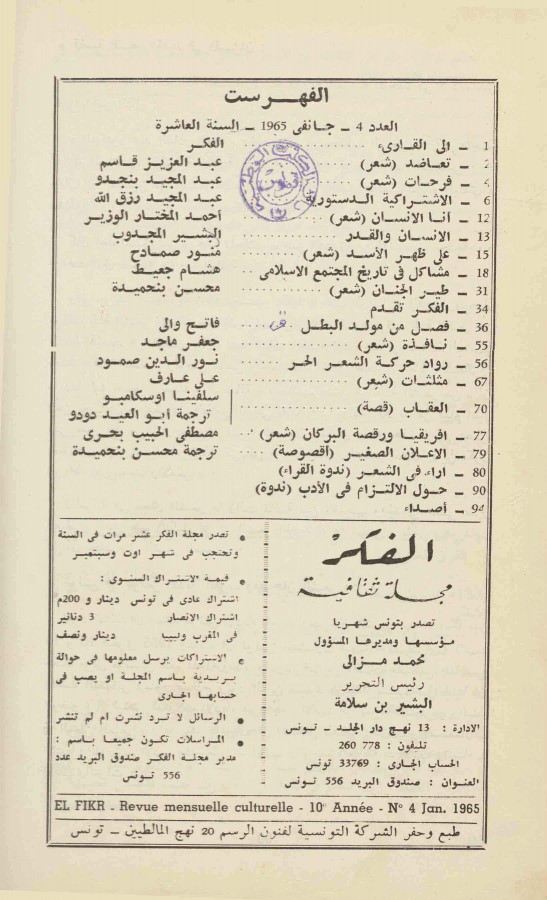 الفهـــرست
العدد 4 - جـانفى 1965 - السنة العاشرة
1 - الى القـارىء الفكـر
2 - تعـاضد (شعر) عبـد العزيـز قـاسم
4 - فرحـات (شعر) عبـد المجيـد بنجـدو
6 - الاشتـراكية الـدستورية عبـد المجيـد رزق الله
12 - أنـا الانسـان (شعر) أحمـد المختـار الوزيـر
13 - الانسـان والقـدر البشيـر المجـدوب
15 - على ظهـر الأسـد (شعر) منـور صمـادح
18 - مشـاكل فى تاريخ المجتمع الاسلامى هشـام جعيـط
31 - طيـر الجنـان (شعر) محسـن بنحميـدة
34 - الفكـر تقـدم
36 - فصـل من مولـد البطـل فاتـح والى
55 - نـافـذة (شعر) جعفـر مـاجد
56 - رواد حركـة الشعـر الحـر نـور الـدين صمـود
67 - مثلثـات (شعر) علـى عـارف
70 - العقـاب (قصة) سلفينـا اوسكـامبـو
ترجمة أبـو العيـد دودو
77 - افريقيـا ورقصة البركـان (شعر) مصطفى الحبيب بحـرى
79 - الاعـلان الصغيـر (أقصوصة) ترجمة محسـن بنحميـدة
80 - اراء فى الشعـر (ندوة القراء)
90 - حـول الالتـزام فى الأدب (ندوة)
94 - أصـداء
الفكر
مجلة ثقافية
تصدر بتونس شهريـا
مؤسسهـا ومديرهـا المسؤول
محمد مـزالى
رئيس التحرير
البشير بن سلامة
الادارة : 13 نهـج دار الجلـد - تـونس
تليفون : 778 260
الحساب الجارى : 33769 تونس
العنـوان : صندوق البريد 556 تـونس
• تصدر مجلة الفكر عشر مرات فى السنة
وتحتجب فى شهـر اوت وسبتمبر
• قيمـة الاشتـراك السنـوى :
اشتراك عادى فى تونس دينار و 200م
اشتراك الانصار 3 دنانير
فى المغرب وليبيا دينار ونصف
• الاشتراكات يرسل معلومها فى حوالة
بـريـدية باسم المجلـة او يصب فى
حسابهـا الجارى
• الرسائل لا تـرد نشرت ام لم تنشر
• المـراسلات تكـون جميعـا باسـم :
مدير مجلـة الفكـر صندوق البريد عدد
556 تـونس
EL FIKR - Revue mensuelle culturelle - 10e Année - N° 4 Jan. 1965
طبع وحفر الشركة التونسية لفنون الرسم 20 نهج المالطيين - تونس